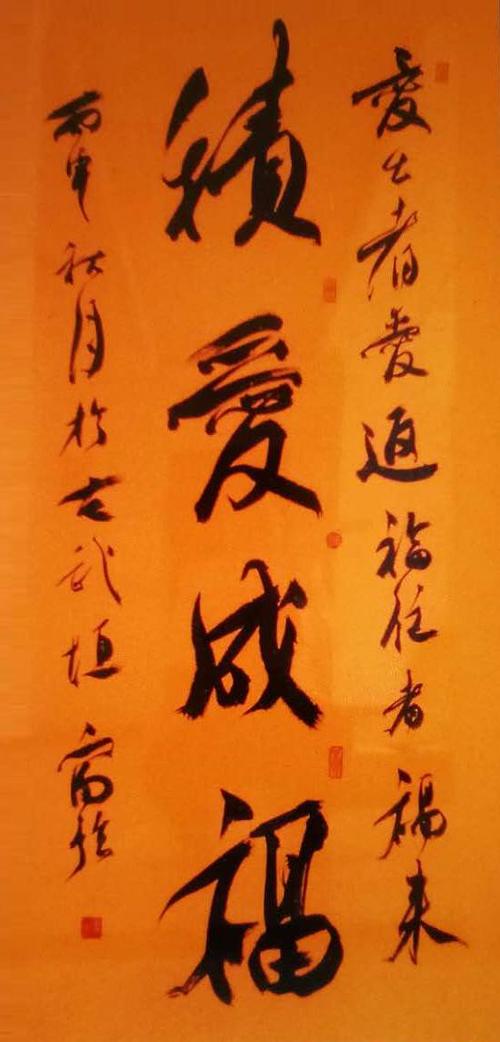 愛出者愛返福往者福来
積愛成福
丙申秋月於古武垣